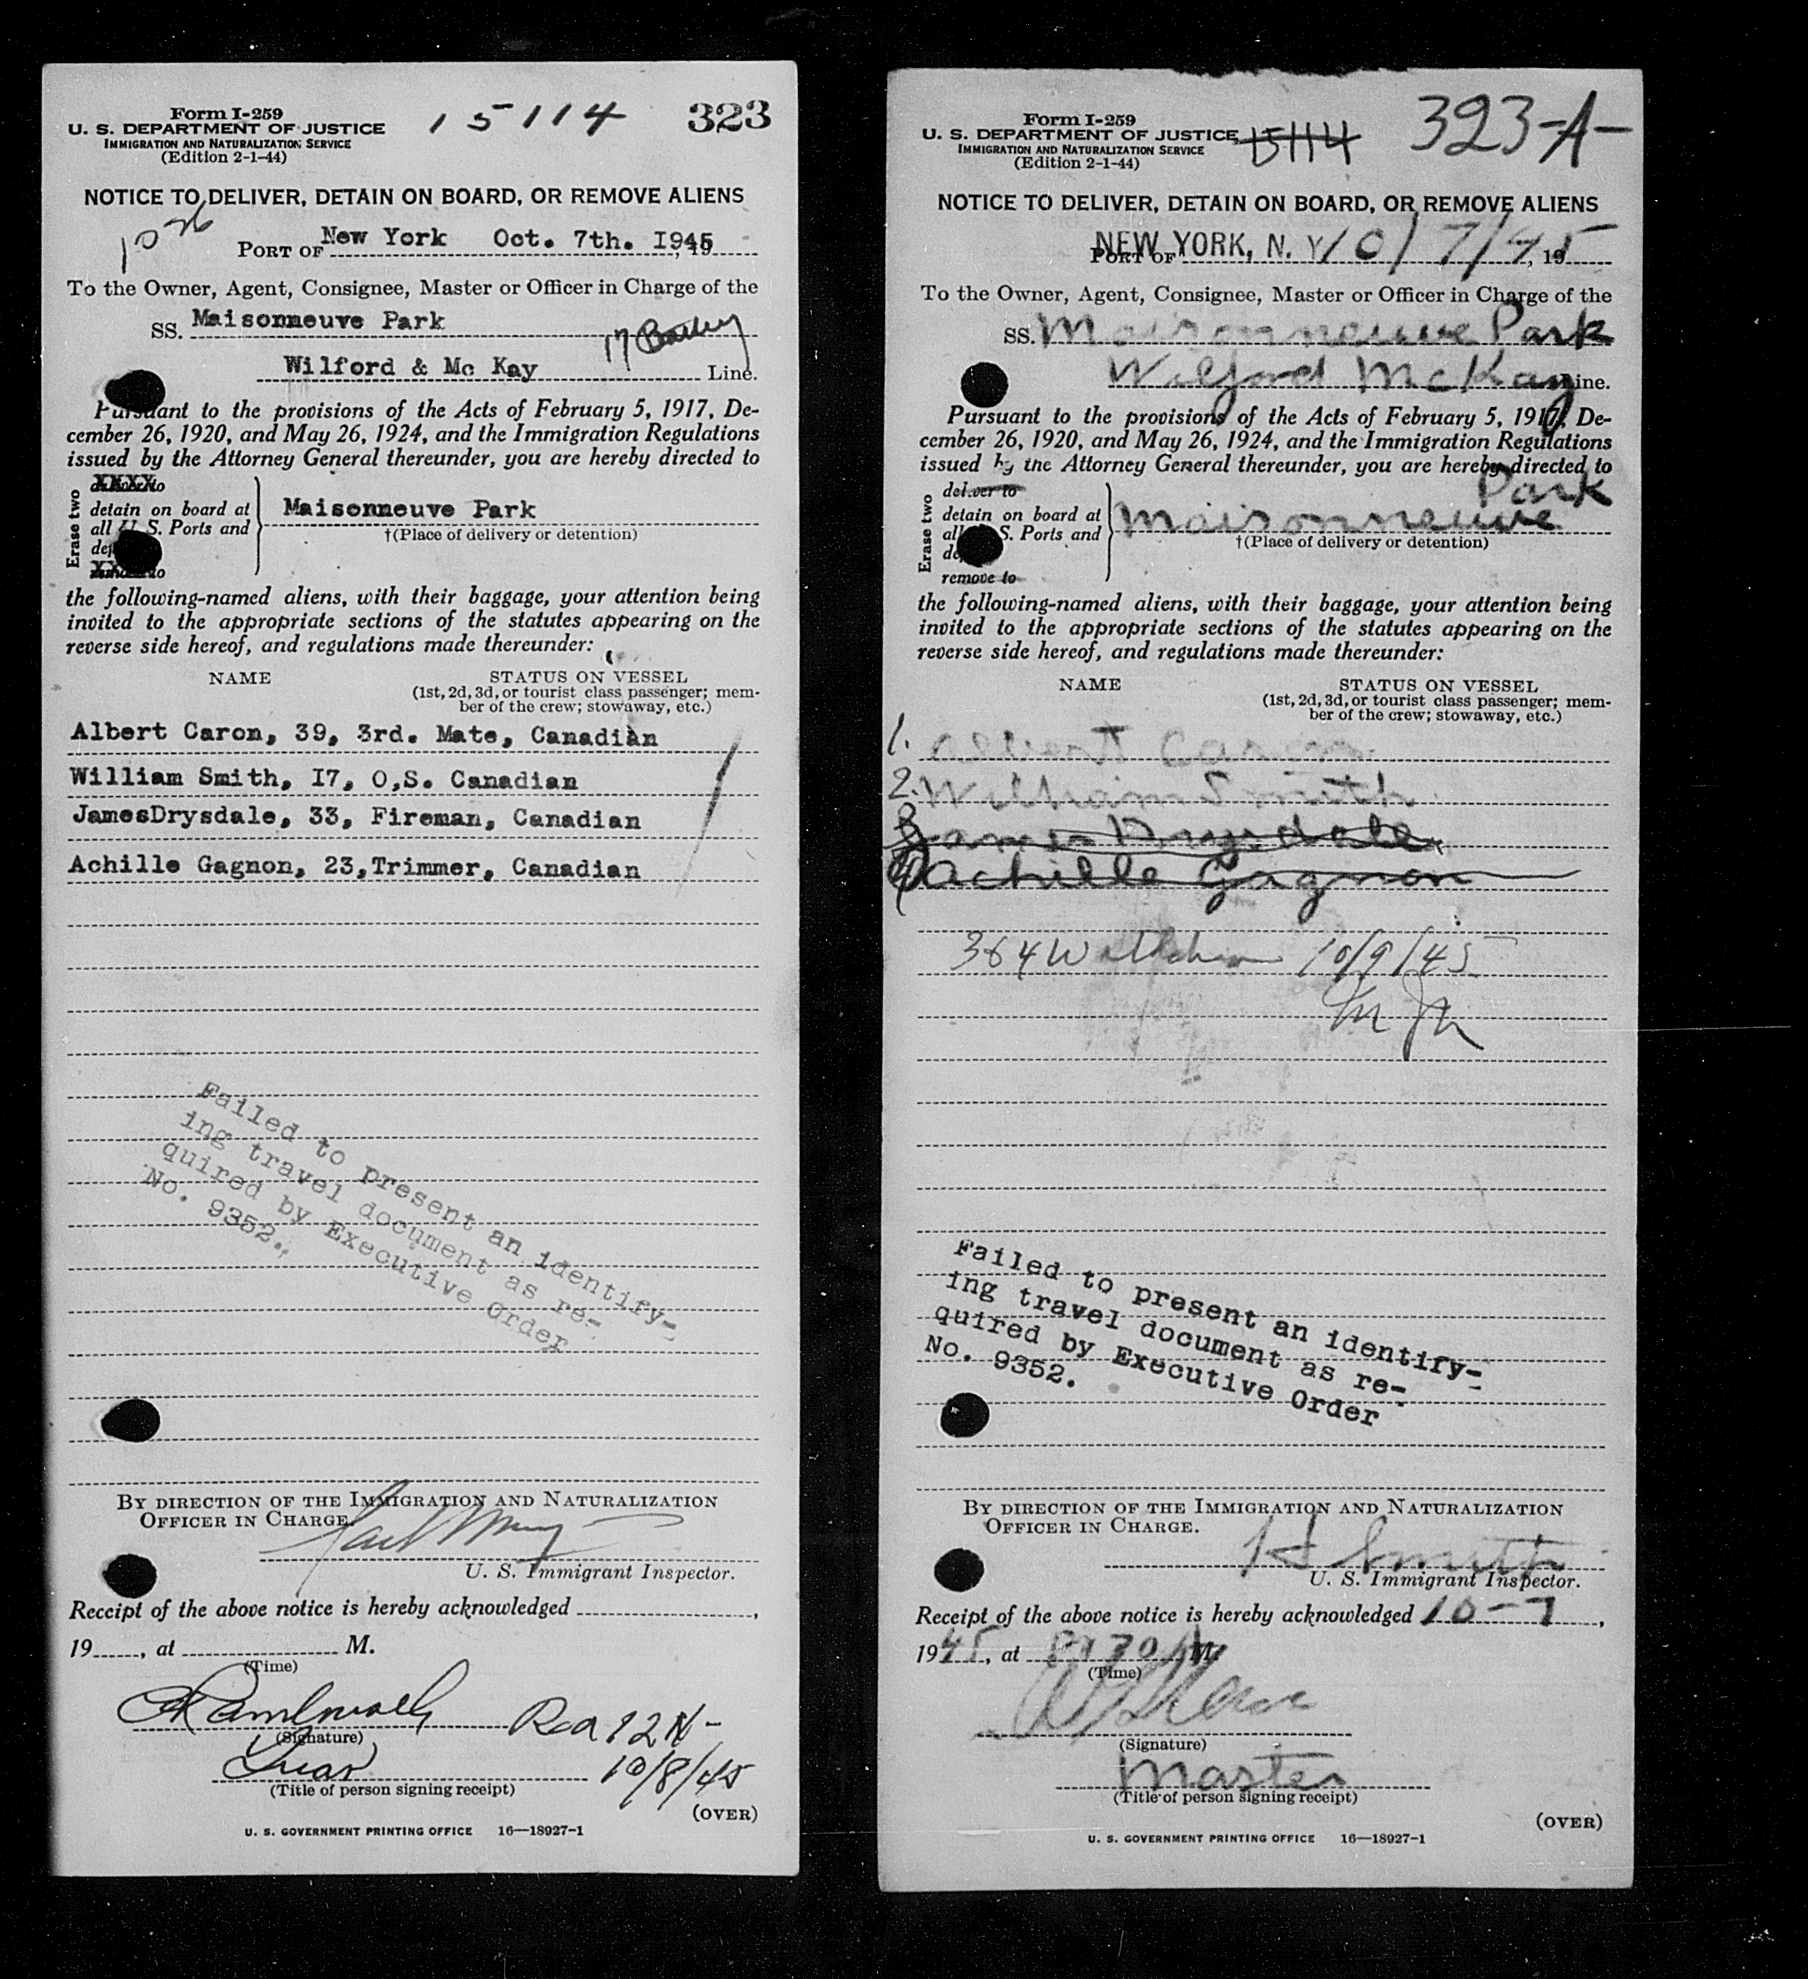 Form I-259
U. S. DEPARTMENT OF JUSTICE
IMMIGRATION AND NATURALIZATION SERVICE
(Edition 2-1-44)
15114
323
NOTICE TO DELIVER, DETAIN ON BOARD, OR REMOVE ALIENS
PORT OF New York Oct. 7th. I945, 19
To the Owner, Agent, Consignee, Master or Officer in Charge of the
SS. Maisonneuve Park
17
Wilford & Mc Kay Line.
Pursuant to the provisions of the Acts of February 5, 1917, De-
cember 26, 1920, and May 26, 1924, and the Immigration Regulations
issued by the Attorney General thereunder, you are hereby directed to
Erase two
XXXX to
detain on board at
all U. S. Ports and
Maisonneuve Park
†(Place of delivery or detention)
to
the following-named aliens, with their baggage, your attention being
invited to the appropriate sections of the statutes appearing on the
reverse side hereof, and regulations made thereunder:
NAME
STATUS ON VESSEL
(1st, 2d, 3d, or tourist class passenger; mem-
ber of the crew; stowaway, etc.)
Albert Caron, 39, 3rd. Mate, Canadian
William Smith, I7, O,S. Canadian
JamesDrysdale, 33, Fireman, Canadian
Achille Gagnon, 23,Trimmer, Canadian
Failed to present an identify-
ing travel document as re-
quired by Executive Order
No. 9352.
BY DIRECTION OF THE IMMIGRATION AND NATURALIZATION
OFFICER IN CHARGE.
U. S. Immigrant Inspector.
Receipt of the above notice is hereby acknowledged ,
19 , at M.
(Time)
12 N-
(Signature)
10/8/45
(Title of person signing receipt)
(OVER)
U. S. GOVERNMENT PRINTING OFFICE 16—18927-1
Form I-259
U. S. DEPARTMENT OF JUSTICE
IMMIGRATION AND NATURALIZATION SERVICE
(Edition 2-1-44)
15114
323-A-
NOTICE TO DELIVER, DETAIN ON BOARD, OR REMOVE ALIENS
PORT OF NEW YORK, N. Y 10/7/45, 19
To the Owner, Agent, Consignee, Master or Officer in Charge of the
SS. Maisonneuve Park
Wilford McKay Line.
Pursuant to the provisions of the Acts of February 5, 1917, De-
cember 26, 1920, and May 26, 1924, and the Immigration Regulations
issued by the Attorney General thereunder, you are hereby directed to
Erase two
deliver to
detain on board at
all U. S. Ports and
remove to
Maisonneuve Park
†(Place of delivery or detention)
the following-named aliens, with their baggage, your attention being
invited to the appropriate sections of the statutes appearing on the
reverse side hereof, and regulations made thereunder:
NAME
STATUS ON VESSEL
(1st, 2d, 3d, or tourist class passenger; mem-
ber of the crew; stowaway, etc.)
1. Albert Caron
2. William Smith
3 James Drysdale
4 Achille Gagnon
364 10/9/45
Failed to present an identify-
ing travel document as re-
quired by Executive Order
No. 9352.
BY DIRECTION OF THE IMMIGRATION AND NATURALIZATION
OFFICER IN CHARGE.
H Smith
U. S. Immigrant Inspector.
Receipt of the above notice is hereby acknowledged 10-7,
1945, at 8:30 A M.
(Time)
(Signature)
Master
(Title of person signing receipt)
(OVER)
U. S. GOVERNMENT PRINTING OFFICE 16—18927-1